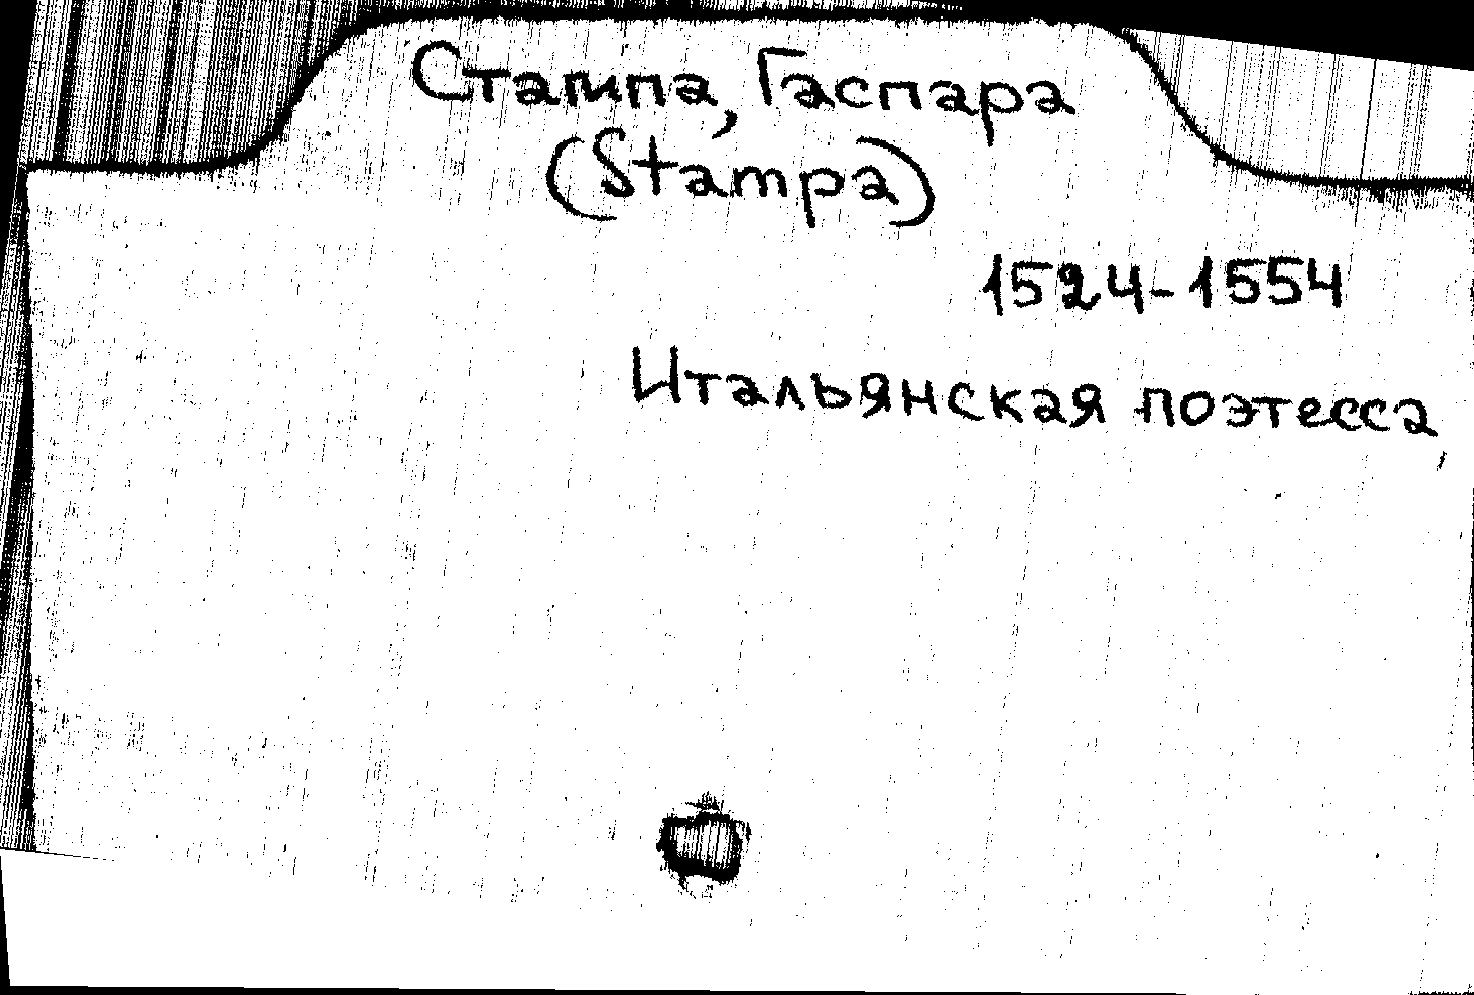 Стампа, Гаспара
(Stampa)
1524-1554
Итальянская поэтесса,